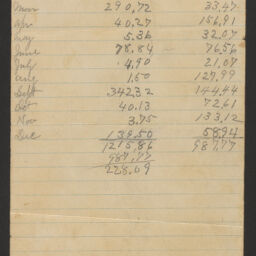 Mar 290.72 33.47
Apr 40.27 156.91
May 5.36 32.07
June 78.84 76.56
July 4.90 21.07
Aug 1.50 129.99
Sept 342.32 144.44
Oct 40.13 72.61
Nov 3.75 133.12
Dec 139.50 58.94
1215.86 987.77
987.77
228.09